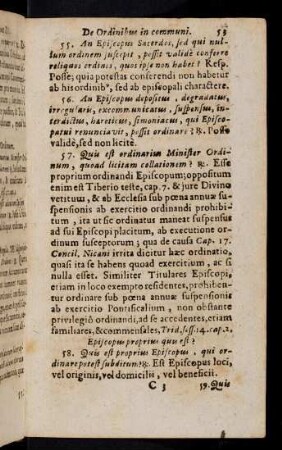 De Ordinibus in communi. 53
55. An Episcopus Sacerdos, sed qui nul-
lum ordinem suscepit, possit validè conferre
reliquos ordines, quos ipse non habet? Resp.
Posse; quia potestas conferendi non habetur
ab his ordinib⁹, sed ab episcopali charactere.
56. An Episcopus depositus, degradatus,
irregularis, excommunicatus, suspensus, in-
terdictus, hæreticus, simoniacus, qui Episco-
patui renunciavit, possit ordinare? ℞. Posse
validè, sed non licitè.
57. Quis est ordinarius Minister Ordi-
num, quoad licitam collationem? ℞. Esse
proprium ordinandi Episcopum; oppositum
enim est Tiberio teste, cap. 7. & jure Divino
vetitum, & ab Ecclesia sub pœna annuæ su-
spensionis ab exercitio ordinandi prohibi-
tum, ita ut sic ordinatus maneat suspensus
ad sui Episcopi placitum, ab executione or-
dinum susceptorum; qua de causa Cap. 17.
Concil. Nicæni irrita dicitur hæc ordinatio,
quasi ita se habens quoad exercitium, ac si
nulla esset. Similiter Titulares Episcopi,
etiam in loco exempto residentes, prohiben-
tur ordinare sub pœna annuæ suspensionis
ab exercitio Pontificalium, non obstante
privilegiô ordinandi, ad se accedentes, etiam
familiares, & commensales, Trid. sess. 14. cap. 2.
Episcopus proprius quis est?
58. Quis est proprius Episcopus, qui or-
dinare potest subditum? ℞. Est Episcopus loci,
vel originis, vel domicilii, vel beneficii.
C 3 59. Quis